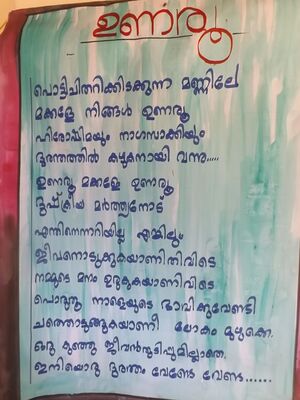 ഉണരൂ
പൊട്ടിചിതറിക്കിടക്കുന്ന മണ്ണിലേ
മക്കളേ നിങ്ങൾ ഉണരൂ
ഹിരോഷിമയും നാഗസാക്കിയും
ദുരന്തത്തിൽ കഴുകനായി വന്നു.....
ഉണരൂ മക്കളേ ഉണരൂ
ദുഷ്ക്രിയ മർത്ത്യനോട്
എന്തിനെന്നറിയില്ല എങ്കിലും
ജീവനൊടുക്കുകയാണിതിവിടെ
നമ്മുടെ മനം ഉരുകുകയാണിവിടെ
പൊരുതൂ നാളെയുടെ ഭാവിക്കുവേണ്ടി
ചത്തൊടുങ്ങുകയാണീ ലോകം മുഴുക്കെ.
ഒരു കുഞ്ഞു ജീവൻതുടിപ്പുമില്ലാതെ.
ഇനിയൊരു ദുരന്തം വേണ്ടേ വേണ്ട......